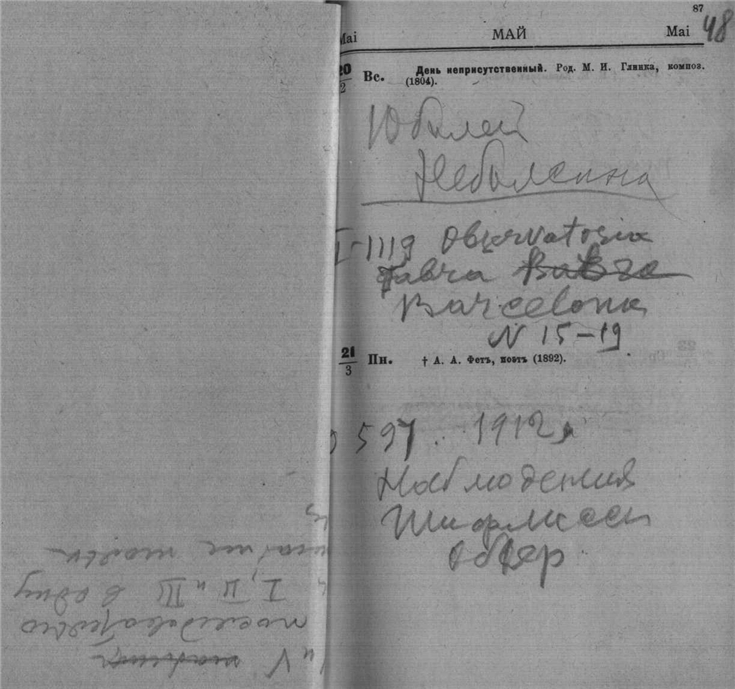 87
48
Mai МАЙ Mai
20
2
Вс. День неприсутственный. Род. М. И. Глинка, композ.
(1804).
Юбилей
Небольсина
I-1119 Observatorio
Fabra
Barcelona
N 15-19
21
3
Пн. † А. А. Фетъ, поэтъ (1892).
597 1912
Наблюдения
Обсер
I, II и III в одну
и V